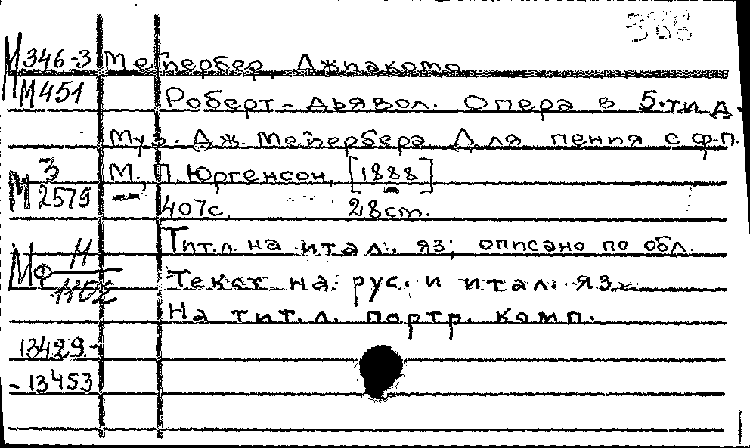 М346-3 Мейербер, Джакомо
М451 Роберт-дьявол. Опера в 5-ти д.
Муз. Дж Мейербера Для пения с ф.п.
М З/2579 М, П. Юргенсон, [1888]
407с. 28см.
Тит.л на итал. яз; описано по обл.
Текст на рус. и итал. яз.
На тит. л. портр. комп.
13429-
-13453